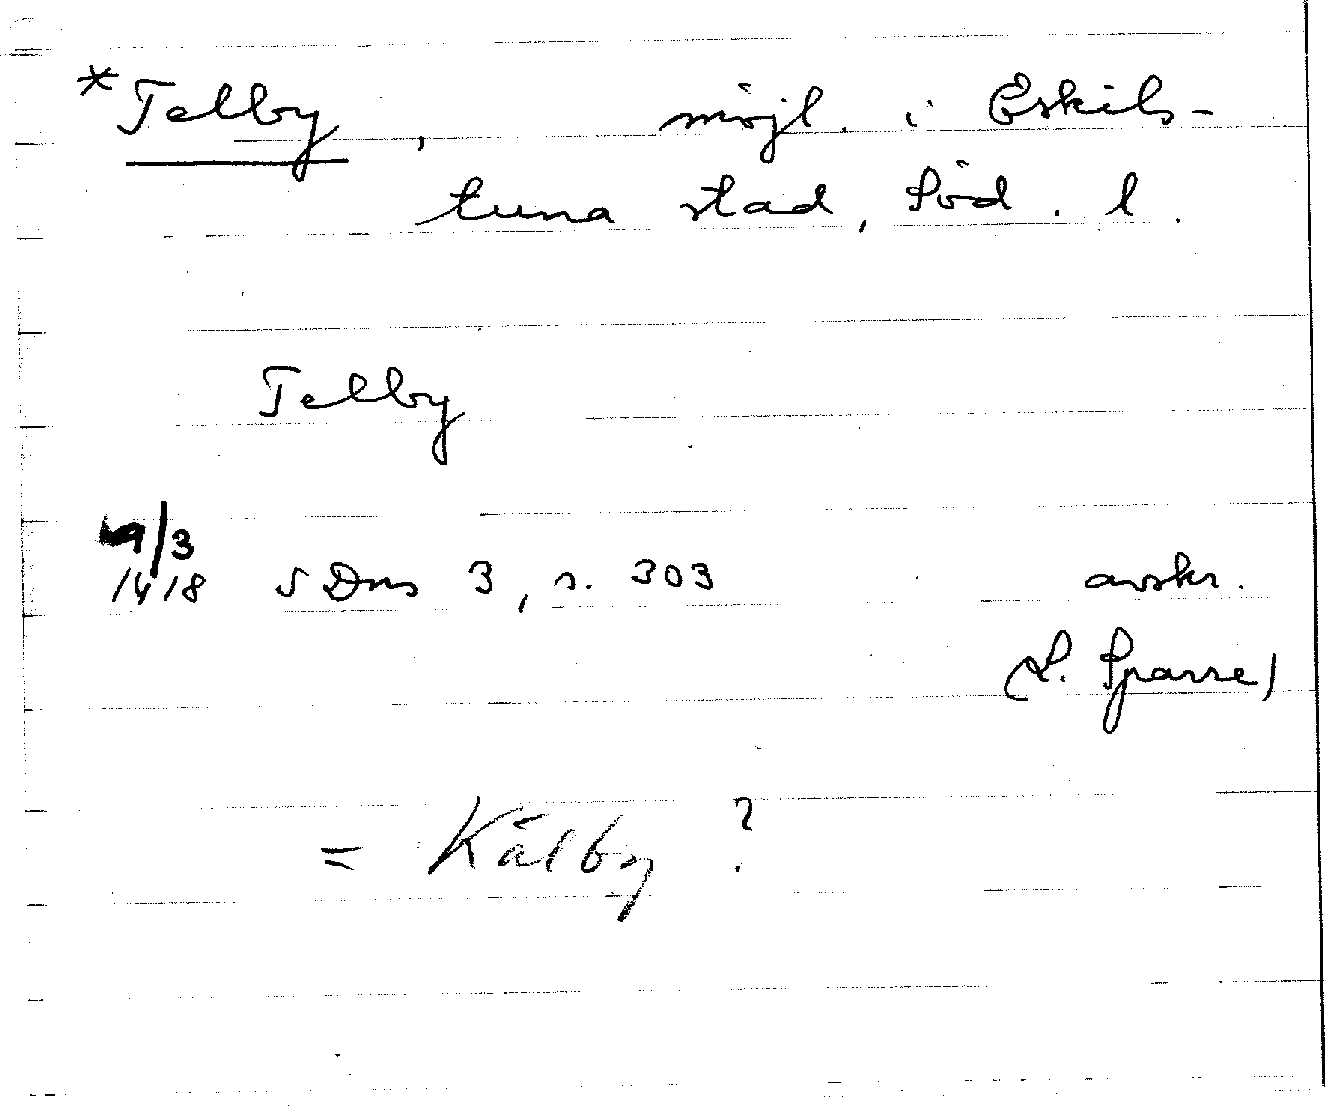 *Telby, möjl. i Eskils-
tuna stad, Söd. l.
Telby
9/3
1418 SDns 3, s. 303 avskr.
(L. Sparre)
= Kålby?